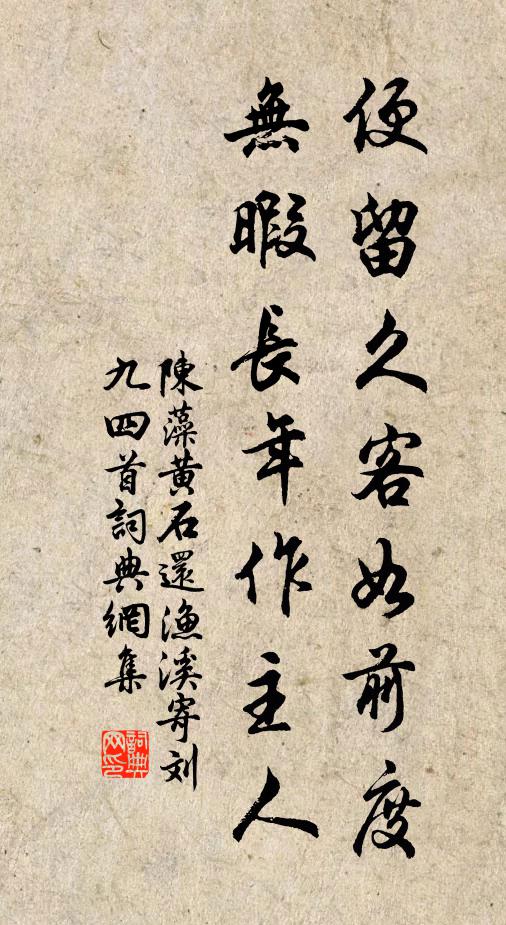 便留久客如前度
無暇長年作主人
陳藻黃石還漁溪寄刘
九四首詞典網集
詞典网印